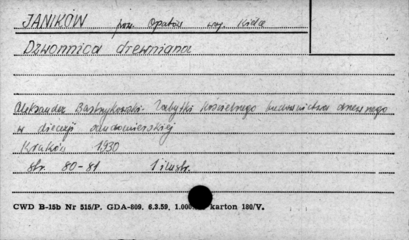 JANIKÓW pow. Opatów woj. Kielce
Dzwonnica drewniana
Aleksander Bastrzykowski - Zabytki kościelnego budownictwa drzewnego
w diecezji sandomierskiej
Kraków 1930
str. 80-81 1 ilustr.
CWD B-15b Nr 515/P. GDA-809. 6.3.59. 1.000 karton 180/V.